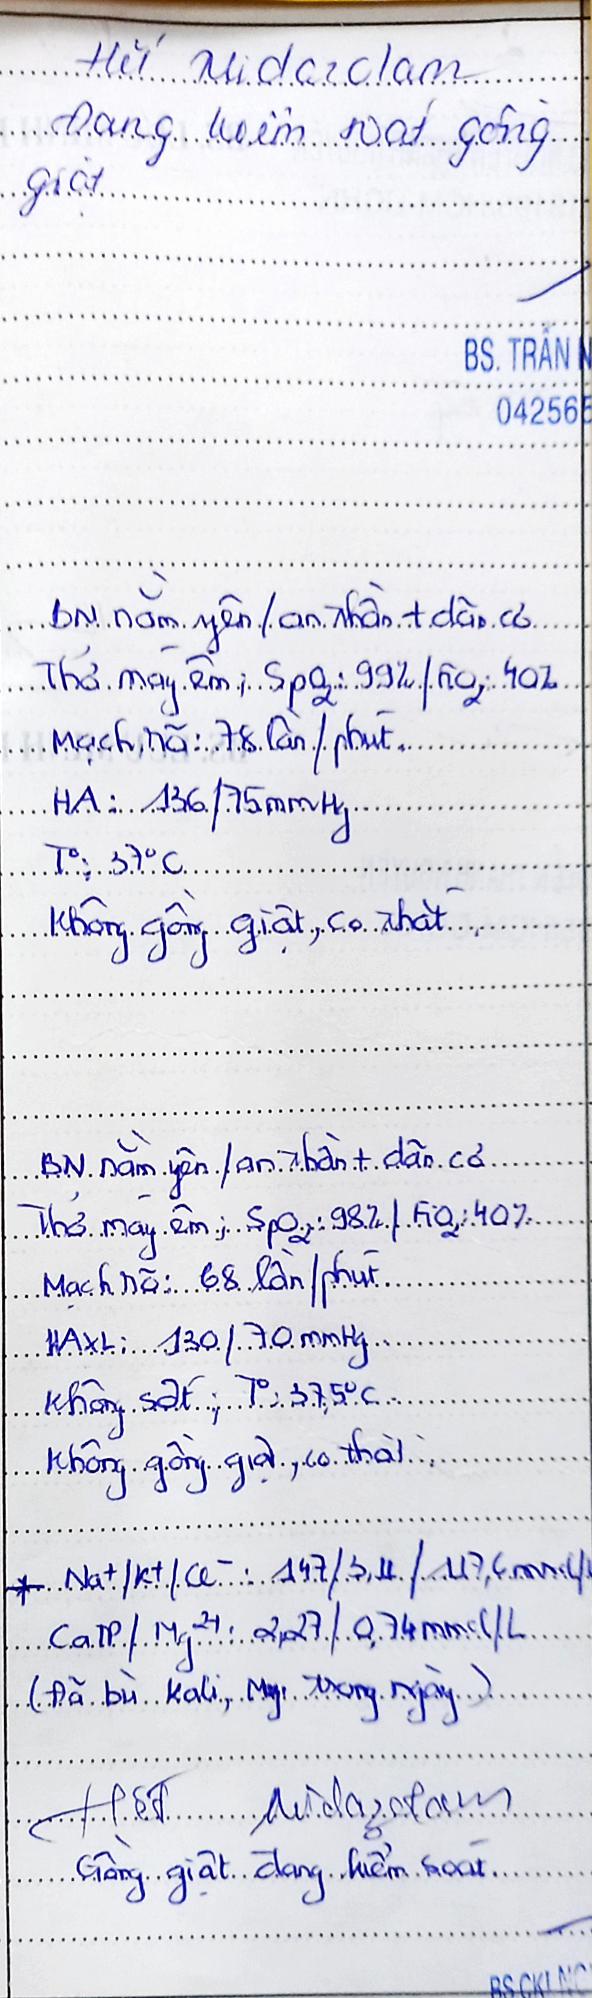 Hết Midazolam
Đang kiểm soát gồng
giật
BS. TRẦN N
042565
BN nằm yên / an thần + dãn cơ
Thở máy êm; SpO₂: 99% / FiO₂: 40%
Mạch rõ: 78 lần / phút.
HA: 136/75mmHg
T°: 37°C
Không gồng giật, co thắt.
BN nằm yên / an thần + dãn cơ
Thở máy êm; SpO₂: 98% / FiO₂: 40%
Mạch rõ: 68 lần / phút
HAXL: 130 / 70 mmHg
Không sốt; T°: 37,5°C
Không gồng giật, co thắt.
* Na⁺/K⁺/Cl⁻: 147/3,11 / 117,6 mmol/L
Ca TP / Mg²⁺: 2,27 / 0,74 mmol/L
(Đã bù Kali, Mg trong ngày)
Hết Midazolam
Gồng giật đang kiểm soát
BS.CKI.NG